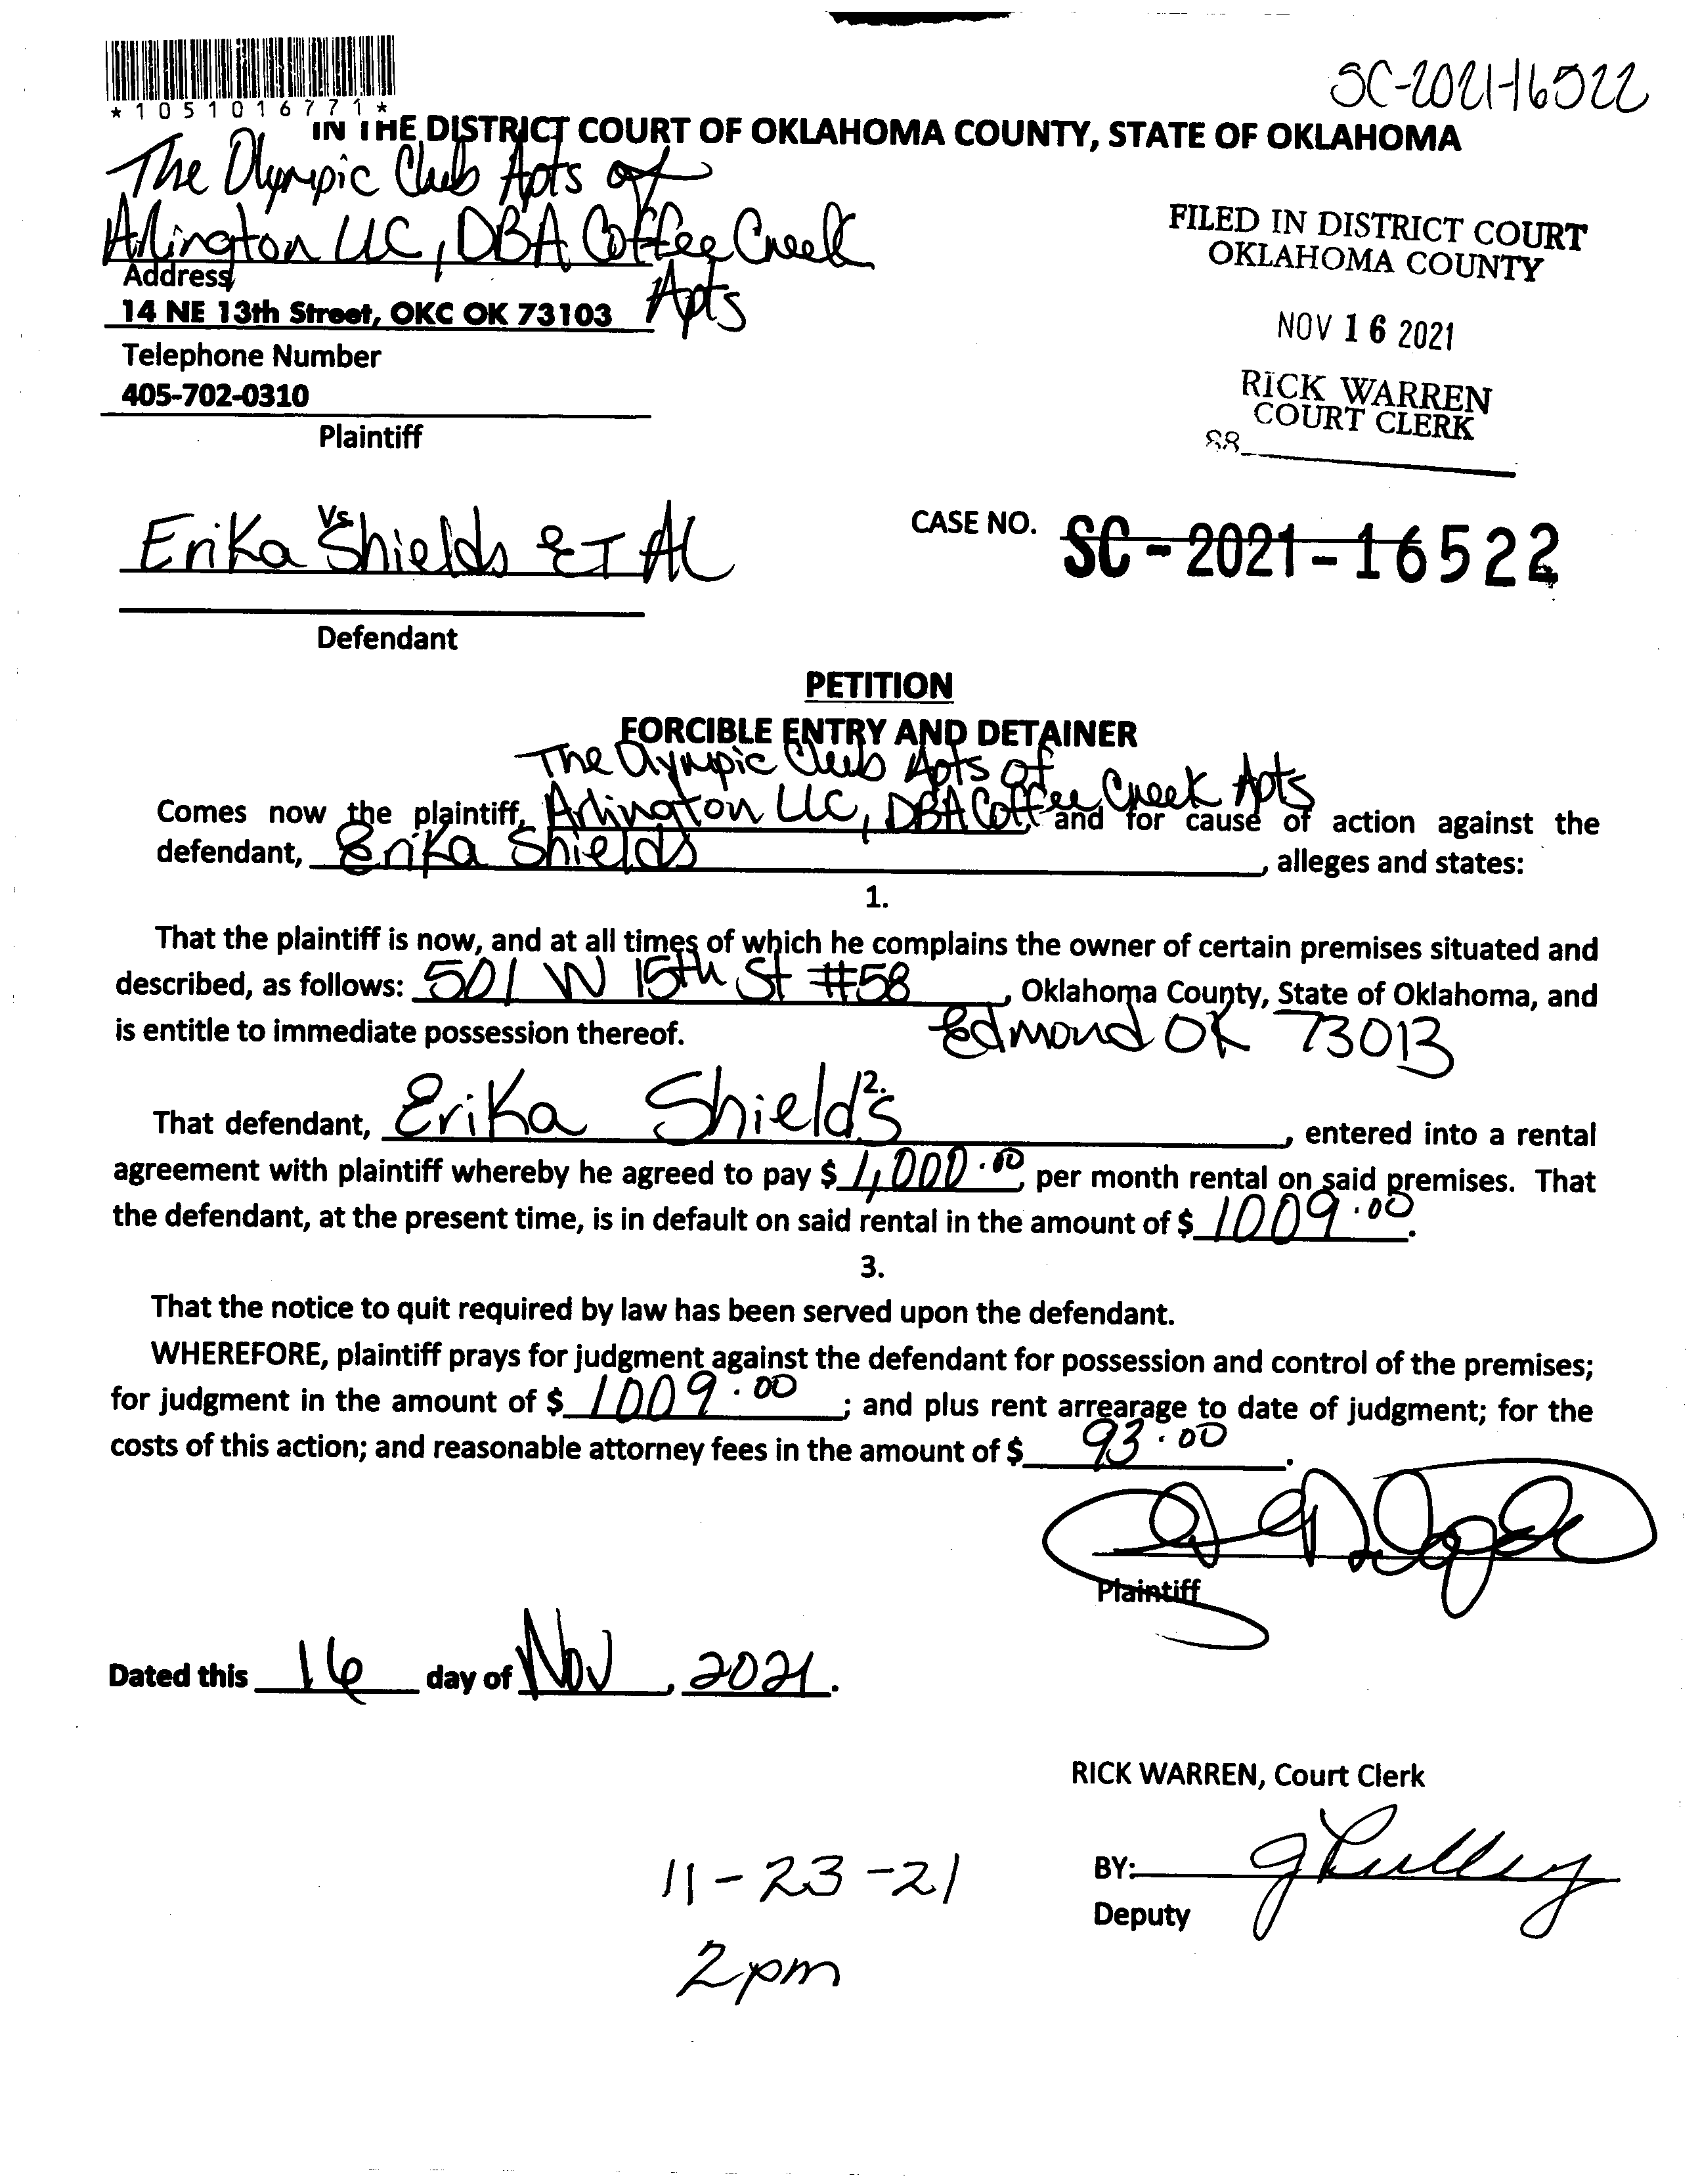 SC-2021-16522
*1051016771*
IN THE DISTRICT COURT OF OKLAHOMA COUNTY, STATE OF OKLAHOMA
The Olympic Club Apts of
Arlington LLC, DBA Coffee Creek
Apts
Address
14 NE 13th Street, OKC OK 73103
Telephone Number
405-702-0310
Plaintiff
FILED IN DISTRICT COURT
OKLAHOMA COUNTY
NOV 16 2021
RICK WARREN
COURT CLERK
88
Vs.
Erika Shields ET AL
Defendant
CASE NO. SC-2021-16522
PETITION
FORCIBLE ENTRY AND DETAINER
The Olympic Club Apts of
Comes now the plaintiff, Arlington LLC, DBA Coffee Creek Apts, and for cause of action against the
defendant, Erika Shields, alleges and states:
1.
That the plaintiff is now, and at all times of which he complains the owner of certain premises situated and
described, as follows: 501 W 15th St #58, Oklahoma County, State of Oklahoma, and
is entitle to immediate possession thereof. Edmond OK 73013
2.
That defendant, Erika Shields, entered into a rental
agreement with plaintiff whereby he agreed to pay $ 1,000.00, per month rental on said premises. That
the defendant, at the present time, is in default on said rental in the amount of $ 1009.00.
3.
That the notice to quit required by law has been served upon the defendant.
WHEREFORE, plaintiff prays for judgment against the defendant for possession and control of the premises;
for judgment in the amount of $ 1009.00; and plus rent arrearage to date of judgment; for the
costs of this action; and reasonable attorney fees in the amount of $ 93.00.
Plaintiff
Dated this 16 day of Nov, 2021.
RICK WARREN, Court Clerk
BY:
Deputy
11-23-21
2pm